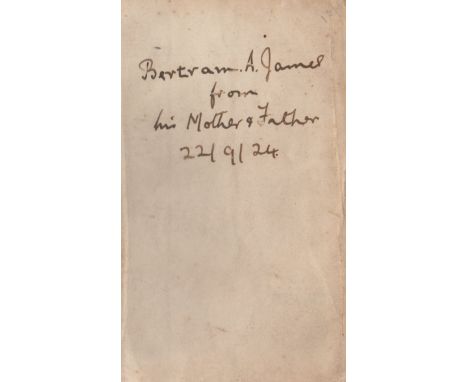 Bertram. A. James
from
his Mother & Father
22/9/24.